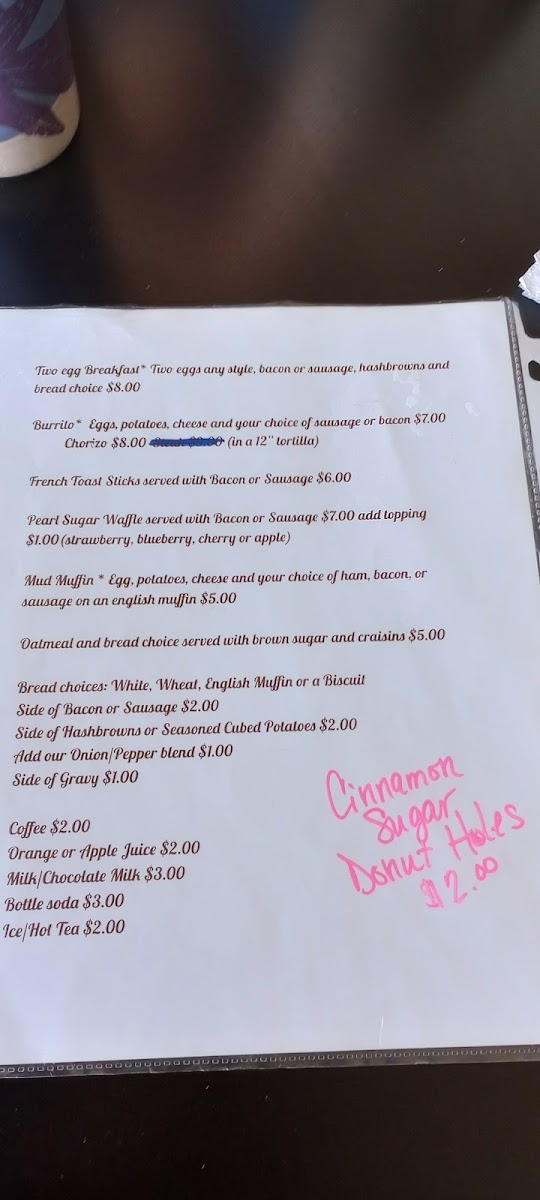 Two egg Breakfast* Two eggs any style, bacon or sausage, hashbrowns and
bread choice $8.00
Burrito* Eggs, potatoes, cheese and your choice of sausage or bacon $7.00
Chorizo $8.00 Steak $9.00 (in a 12" tortilla)
French Toast Sticks served with Bacon or Sausage $6.00
Pearl Sugar Waffle served with Bacon or Sausage $7.00 add topping
$1.00 (strawberry, blueberry, cherry or apple)
Mud Muffin * Egg, potatoes, cheese and your choice of ham, bacon, or
sausage on an english muffin $5.00
Oatmeal and bread choice served with brown sugar and craisins $5.00
Bread choices: White, Wheat, English Muffin or a Biscuit
Side of Bacon or Sausage $2.00
Side of Hashbrowns or Seasoned Cubed Potatoes $2.00
Add our Onion/Pepper blend $1.00
Side of Gravy $1.00
Coffee $2.00
Orange or Apple Juice $2.00
Milk/Chocolate Milk $3.00
Bottle soda $3.00
Ice/Hot Tea $2.00
Cinnamon
Sugar
Donut Holes
$2.00